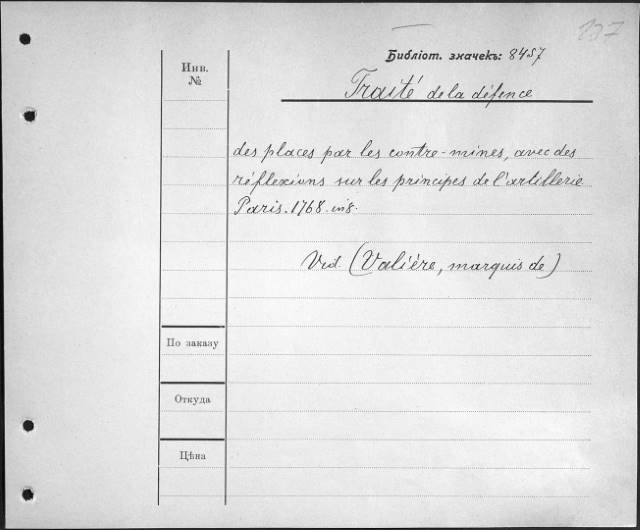 137
Библіот. значекъ: 8457
Инв.
№
Traité de la défence
des places par les contre-mines, avec des
réflexions sur les principes de l'artillerie
Paris. 1768. in 8.
Vid. (Valière, marquis de)
По заказу
Откуда
Цѣна